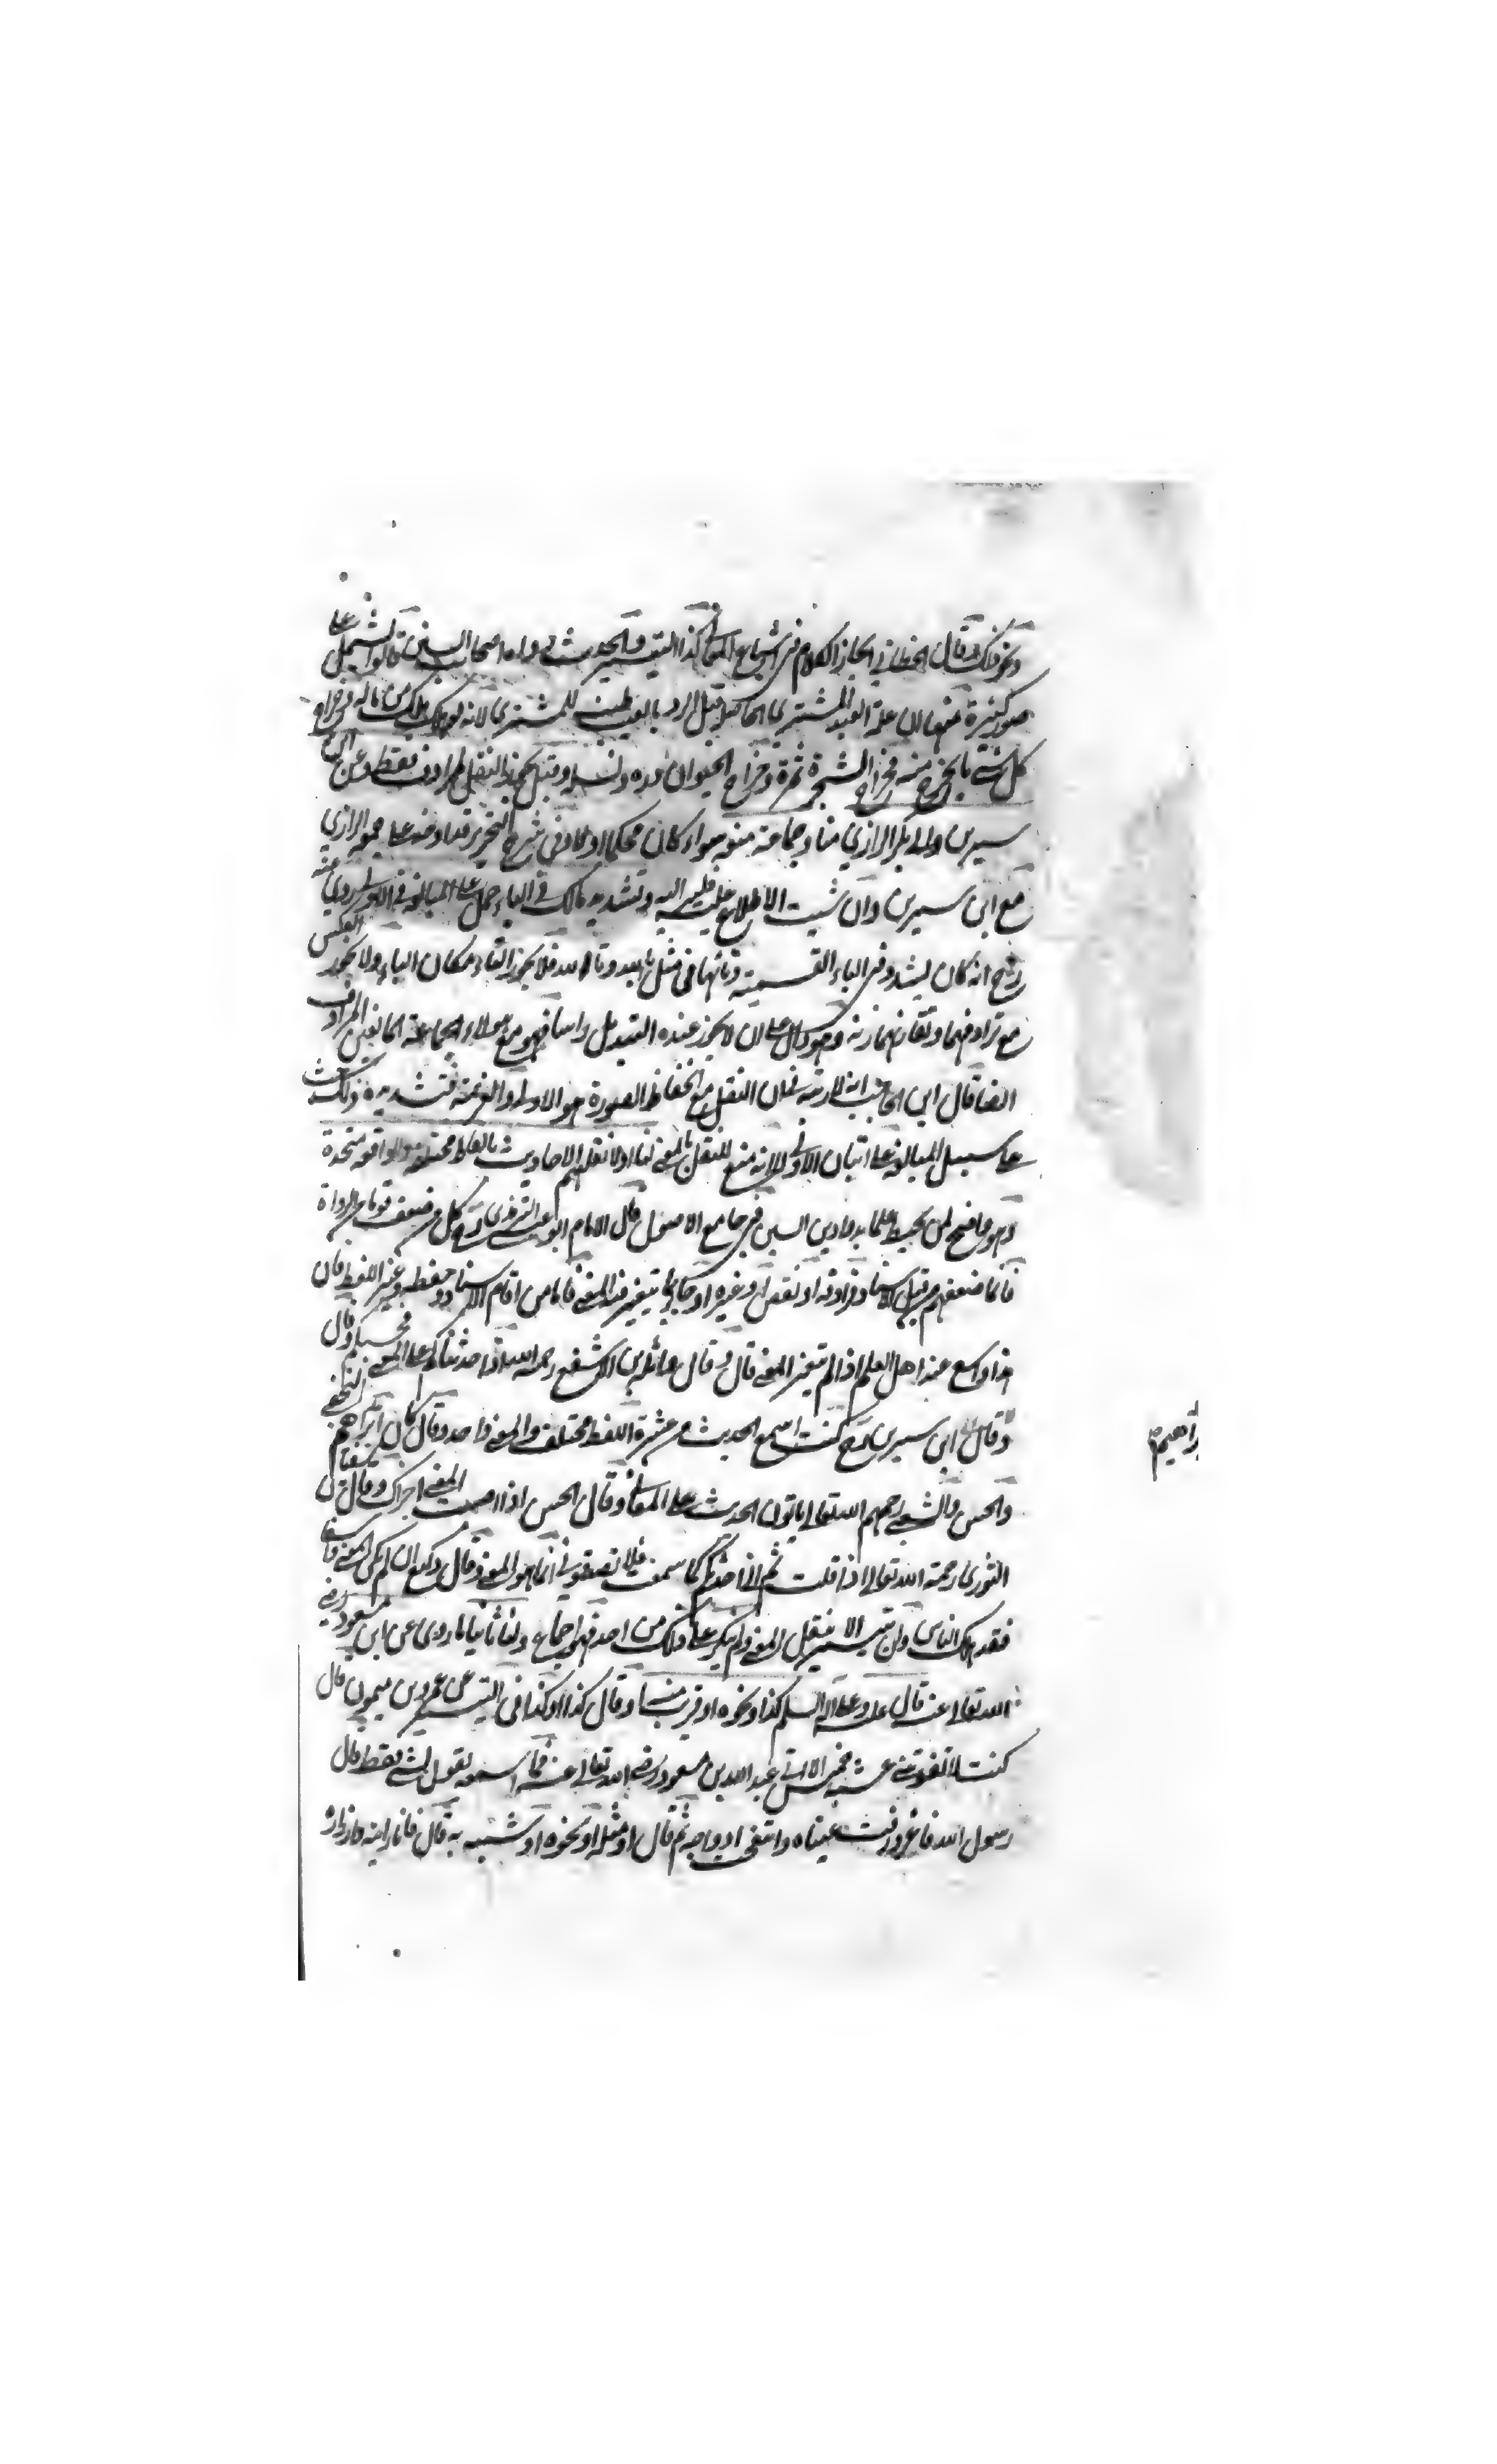 ونحو ذلك قال الخطابي ايجاز الكلام في اشباع المعاني كذا التيسير والحديث رواه اصحاب السنن قالوا يشتمل على
صور كثيرة منها ان غلة العبد المشترى الحاصلة قبل الرد بالعيب طيب للمشتري لانه لو هلك هلك من ماله وخراج
كل شئ ما يخرج منه فخراج الشجرة ثمرة وخراج الحيوان دره ونسله وقيل يجوز النقل بالمرادف فقط وعن ابن
سيرين وابي بكر الرازي منا وجماعة منعه سواء كان محكما اولا وفي شرح التحرير
مع ابن سيرين وان شئت الاطلاع عليه وتشديد مالك في الباء حمل على المبالغة في الاولى روي عنه
رح انه كان يشدد في الباء القسمية وتائها في مثل بالله وتالله فلا يجوز التاء مكان الباء ولا يجوز العكس
مع ترادفهما وتقارنهما وهو دال على ان لا يجوز عنده التبديل راسا فهو مع هولاء الجماعة المانعين المرادف
ايضا قال ابن الحاجب انه لا ريب ان النقل مع انحفاظ الصورة هو الاولى والعزيمة فتشديده ذلك حث
على سبيل المبالغة على اتيان الاولى لا انه منع للنقل بالمعنى لنا اولا نقلهم الاحاديث بالفاظ مختلفة والواقعة متحدة
وهو واضح لمن يحيط علما بدواوين السنن في جامع الاصول قال الامام ابو عيسى الترمذي رح كل من ضعف قوما من الرواة
فانما ضعفهم من قبل الاسناد وزادته او نقص او غيره او جاء بما يتغير فيه المعنى فاما من اقام الاسناد وحفظه وغير اللفظ فان
هذا واسع عند اهل العلم اذا لم يتغير المعنى قال وقال واثلة بن الاسقع رحمه الله اذا حدثناكم على المعنى فحسبكم وقال
وقال ابن سيرين رح كنت اسمع الحديث من عشرة اللفظ مختلف والمعنى واحد وقال كان ابراهيم النخعي
والحسن والشعبي رحمهم الله تعالى ياتون الحديث على المعاني وقال الحسن اذا اصبت المعنى اجزاك وقال سفيان
الثوري رحمة الله تعالى اذا قلت لكم اني احدثكم كما سمعت فلا تصدقوني انما هو المعنى وقال وكيع ان لم يكن المعنى واسعا
فقد هلك الناس وان تيسر الا بنقل المعنى ولم ينكر على ذلك من احد فهو اجماع ولنا ثانيا ما روي عن ابن مسعود رضي
الله تعالى عنه قال عليه وعلى اله السلم كذا او نحوه او قريب منه وقال كذا او كذا في التيسير عن عمرو بن ميمون قال
كنت لا تفوتني عشية خميس الا اتي عبد الله بن مسعود رضي الله تعالى عنه فما اسمعه يقول لشئ قط قال
رسول الله فاغرورقت عيناه وانتفخت اوداجه ثم قال او مثله او نحوه او شبيه به قال فانا رايته وازراره
ابراهيم